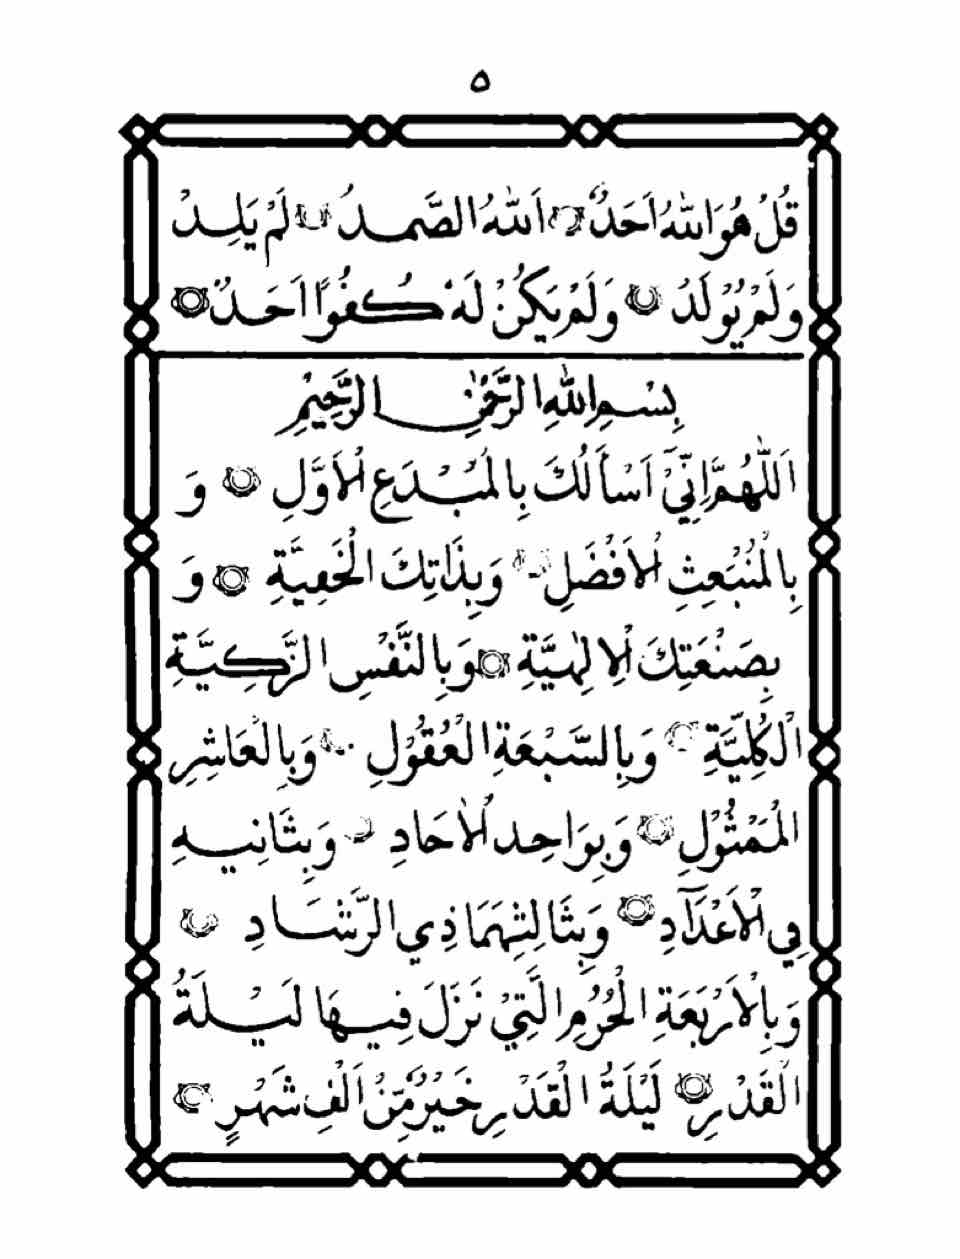 ٥
قُلْ هُوَ اللّٰهُ اَحَدٌ اَللّٰهُ الصَّمَدُ لَمْ يَلِدْ
وَلَمْ يُوْلَدْ وَلَمْ يَكُنْ لَهٗ كُفُوًا اَحَدٌ
بِسْمِ اللّٰهِ الرَّحْمٰنِ الرَّحِيْمِ
اَللّٰهُمَّ اِنِّيْ اَسْأَلُكَ بِالْمُبْدَعِ الْاَوَّلِ وَ
بِالْمُنْبَعِثِ الْاَفْضَلِ وَبِذَاتِكَ الْخَفِيَّةِ وَ
بِصَنْعَتِكَ الْاِلٰهِيَّةِ وَبِالنَّفْسِ الزَّكِيَّةِ
الْكُلِّيَّةِ وَبِالسَّبْعَةِ الْعُقُوْلِ وَبِالْعَاشِرِ
الْمَمْثُوْلِ وَبِوَاحِدِ الْاٰحَادِ وَبِثَانِيْهِ
فِي الْاَعْدَآدِ وَبِثَالِثِهِمَا ذِي الرَّشَادِ
وَبِالْاَرْبَعَةِ الْحُرُمِ الَّتِيْ نَزَلَ فِيْهَا لَيْلَةُ
الْقَدْرِ لَيْلَةُ الْقَدْرِ خَيْرٌ مِّنْ اَلْفِ شَهْرٍ